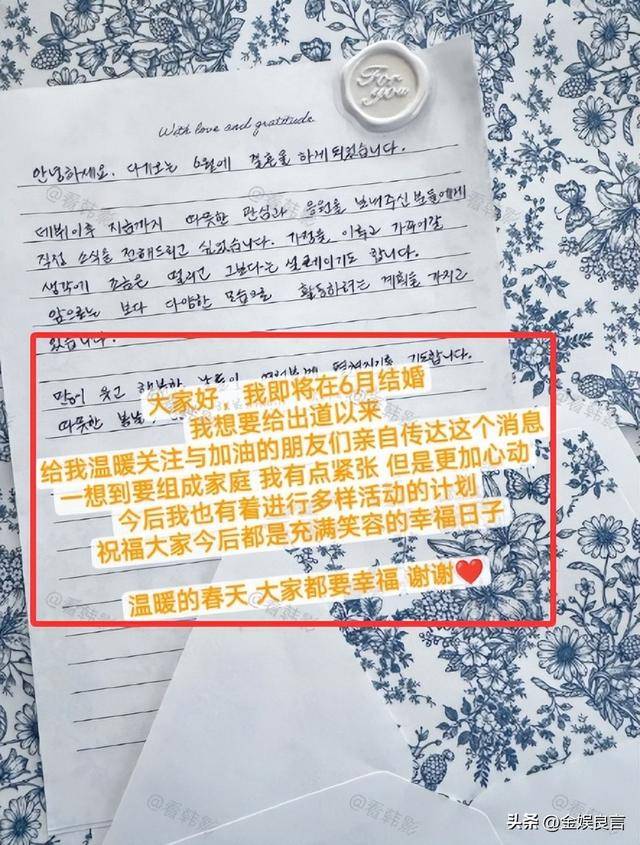 For
you
With love and gratitude
안녕하세요. 다가오는 6월에 결혼을 하게 되었습니다.
데뷔이후 지금까지 따뜻한 관심과 응원을 보내주신 분들에게
직접 소식을 전해드리고 싶었습니다. 가정을 이루고 가꾸어갈
생각에 조금은 떨리고 그보다는 설레이기도 합니다.
앞으로는 보다 다양한 모습으로 활동하려는 계획을 가지고
있습니다.
많이 웃고 행복한 날들이 펼쳐지기를 기도합니다.
따뜻한 봄날,
大家好，我即将在6月结婚
我想要给出道以来
给我温暖关注与加油的朋友们亲自传达这个消息
一想到要组成家庭 我有点紧张 但是更加心动
今后我也有着进行多样活动的计划
祝福大家今后都是充满笑容的幸福日子
温暖的春天 大家都要幸福 谢谢❤️
@看韩影
@看韩影
@看韩影
@看韩影
头条 @金娱良言